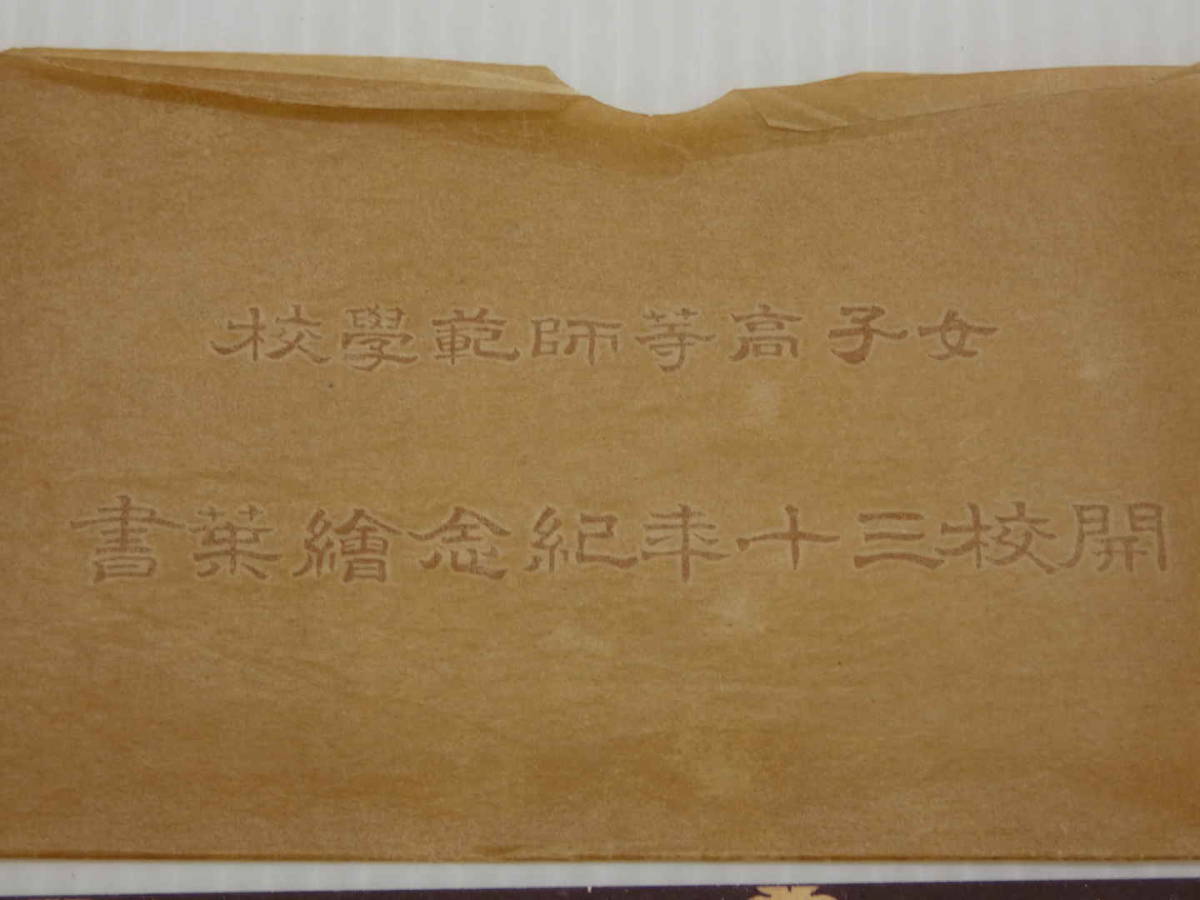 女子高等師範學校
開校三十年紀念繪葉書